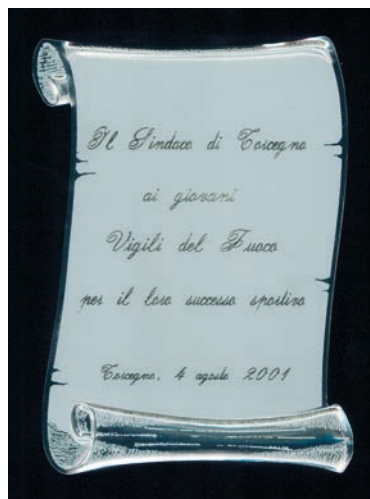 Il Sindaco di Torcegno
ai giovani
Vigili del Fuoco
per il loro successo sportivo
Torcegno, 4 agosto 2001